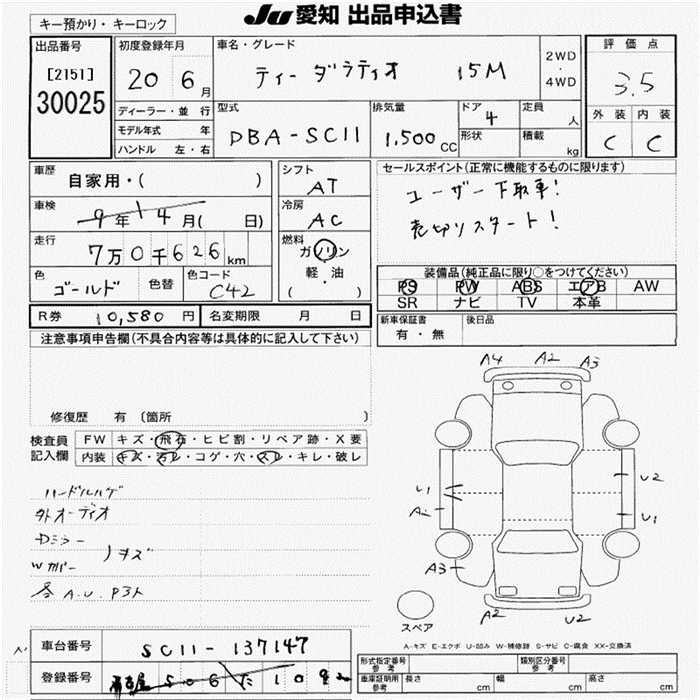 キー預かり・キーロック
JU 愛知 出品申込書
出品番号
[2151]
30025
初度登録年月
20 6月
車名・グレード
ティーダラティオ 15M
2WD
・
4WD
評価点
3.5
ディーラー・並行
モデル年式 年
ハンドル 左・右
型式
DBA-SC11
排気量
1,500cc
ドア
4
形状
定員
人
積載
kg
外装 内装
C C
車歴
自家用・( )
車検
9年14月( 日)
走行
7万0千626km
色
ゴールド
色替
色コード
C42
シフト
AT
冷房
AC
燃料
ガソリン
軽・油
( )
セールスポイント(正常に機能するものに限ります)
ユーザー下取車!
売切りスタート!
装備品(純正品に限り○をつけてください)
PS PW ABS エアB AW
SR ナビ TV 本革
R券 10,580円 名変期限 月 日
新車保証書
有・無
後日品
注意事項申告欄(不具合内容等は具体的に記入して下さい)
修復歴 有 〔箇所 〕
検査員
記入欄
FW キズ・飛石・ヒビ割・リペア跡・X要
内装 キズ・汚レ・コゲ・穴・スレ・キレ・破レ
ハードルハゲ
外オーディオ
Dミラー
Wカバー
ノキズ
各A.U.P3ト
A4 A2 A3
U1
A2
A3
U2
U1
A2 U2
スペア
A-キズ E-エクボ U-凹み W-補修跡 S-サビ C-腐食 XX-交換済
車台番号
SC11-137147
登録番号
名古屋 506 た 10
形式指定番号
参考
類別区分番号
参考
車庫証明用
参考
長さ cm 幅 cm 高さ cm